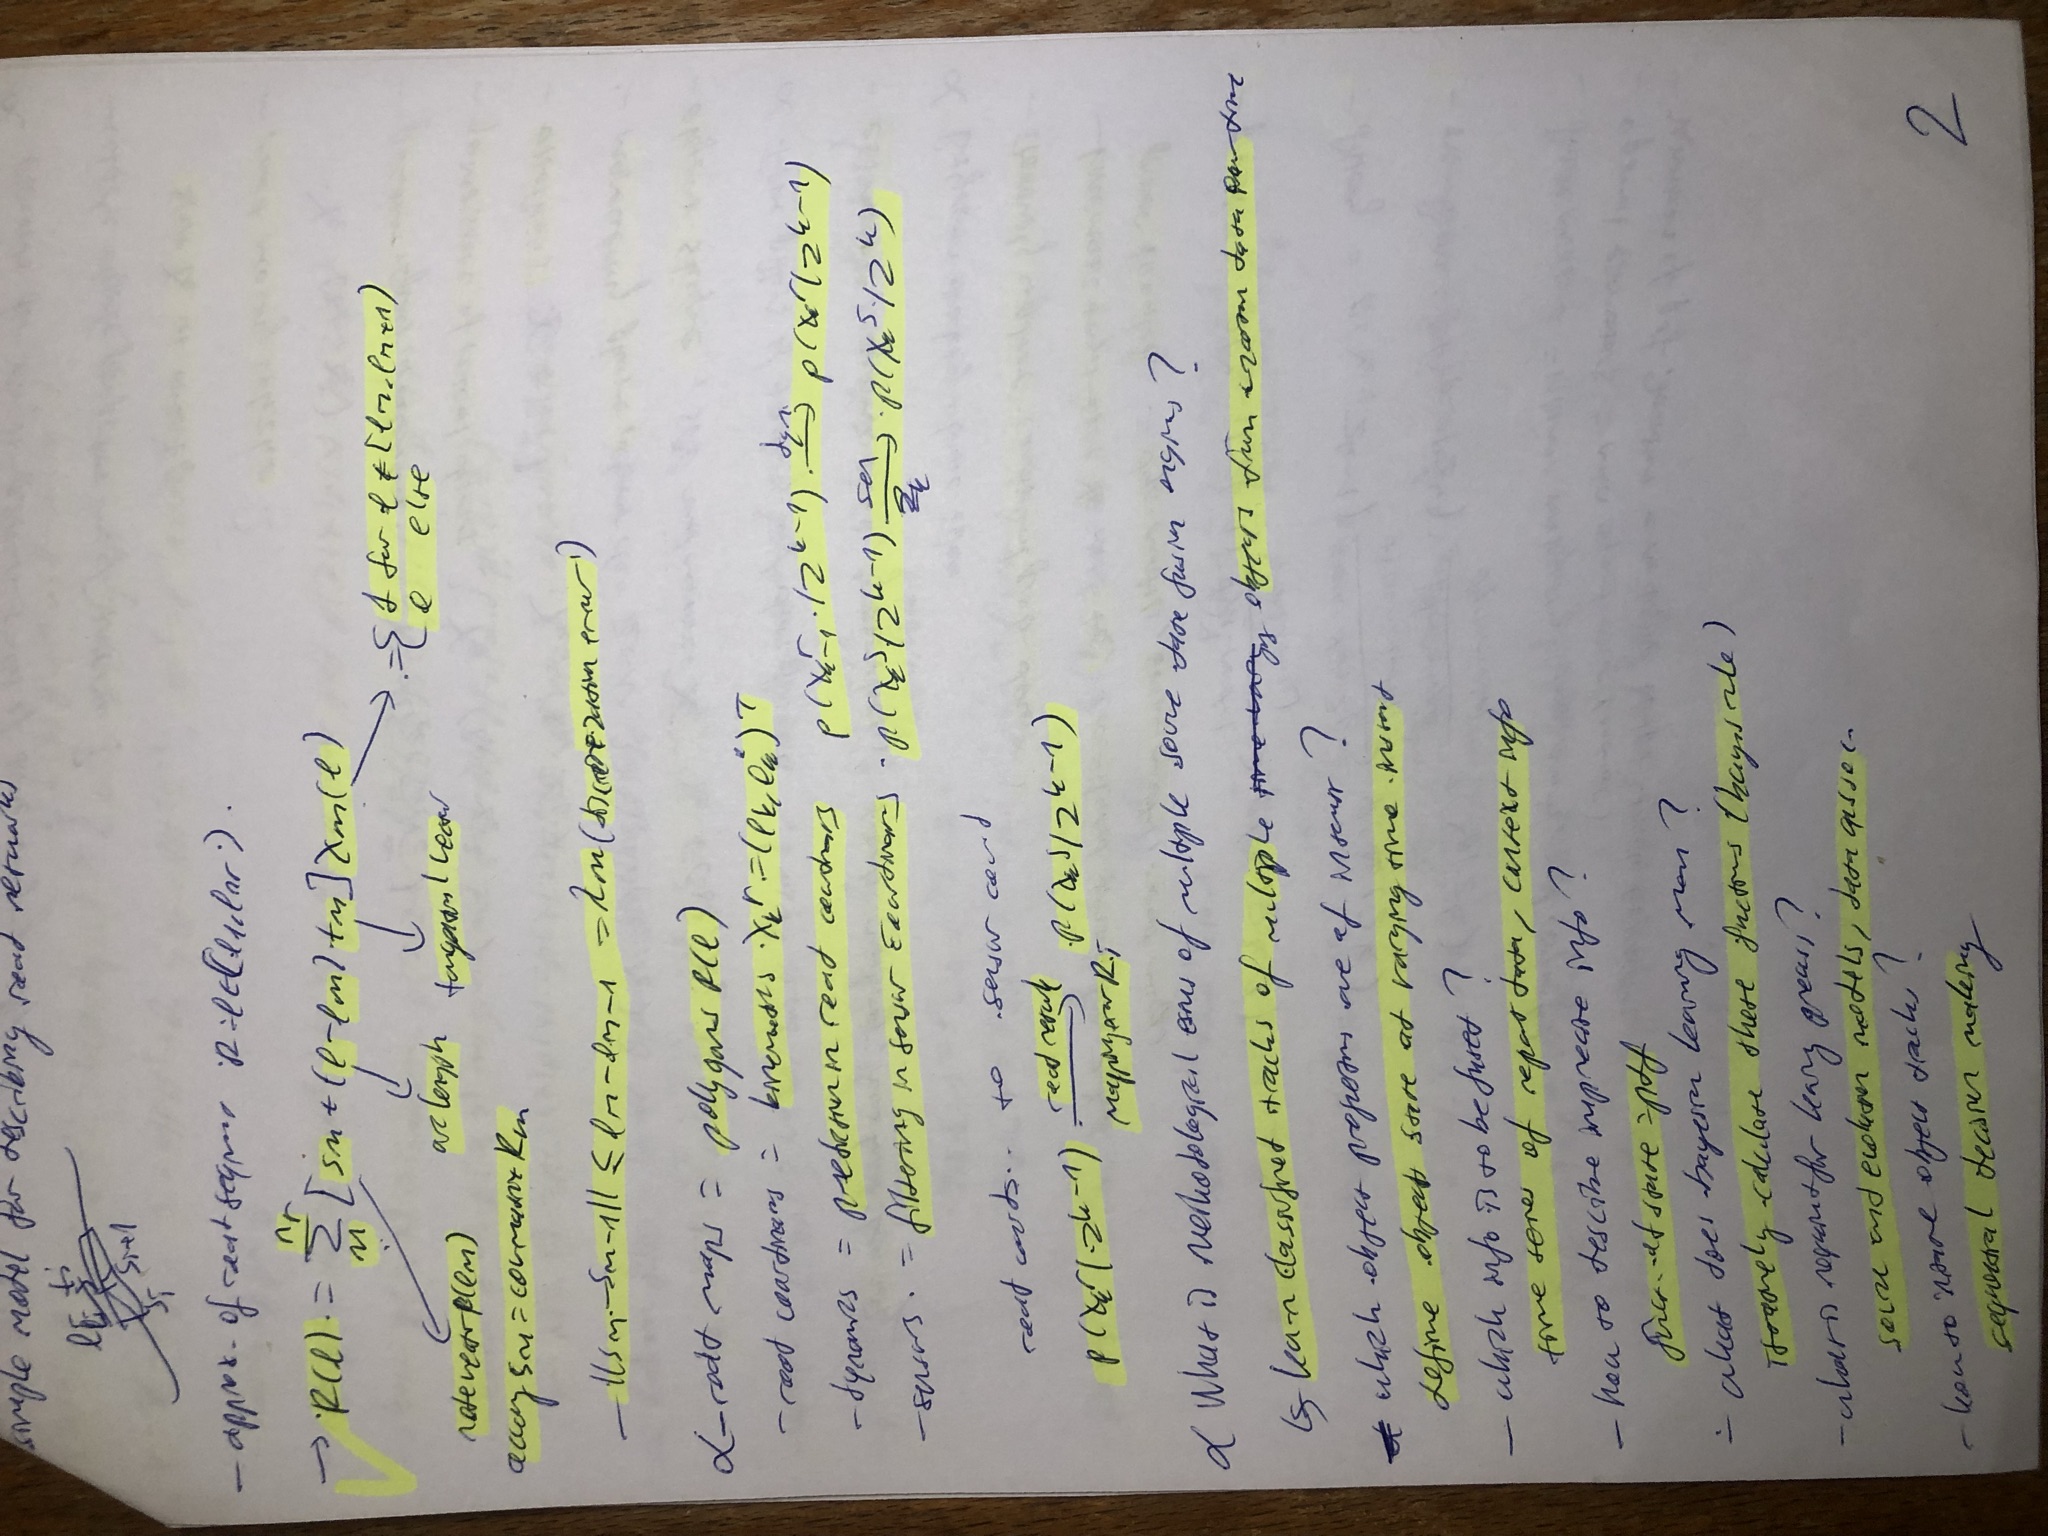 simple model for describing road networks
- approx. of road segm. R: l ∈ (l₁, l_{nr}).
→ R(l) = Σ [s_m + (l - l_m) t_m] χ_m(l)
:= { 1 for l ∈ [l_m, l_{m+1})
0 else
node vector R(l_m) arc length tangential vector
accuracy s_m = covariance R_m
- ||s_m - s_{m-1}|| ≤ l_m - l_{m-1} = λ_m (discretization error)
α - road maps = polygons R(l)
- road coordinates = kinematics x_k^r = (l_k, l̇_k)^T
- dynamics = prediction in road coordinates p(x_{k-1}^r | Z^{k-1}) dyn. → p(x_k^r | Z^{k-1})
- sensors = filtering in sensor coordinates p(x_k^s | Z^{k-1}) sen → Z_k p(x_k^s | Z^k)
road coords... to sensor coord
p(x_k^r | Z^{k-1}) road network → mapping error R_m p(x_k^s | Z^{k-1})
α What is methodological of multiple sensor data fusion ?
↳ learn classified tracks of multiple objects from data
which object properties are of interest ?
define object state at varying time instant
- which info is to be fused ?
time series of report data, context info
- how to describe imprecise info ?
state : pdf
- what does bayesian learning mean ?
iteratively calculate these functions (bayes rule)
- what is required for learning process ?
sensor and evolution models, data assoc.
- how to initiate object tracks ?
sequential decision making
2